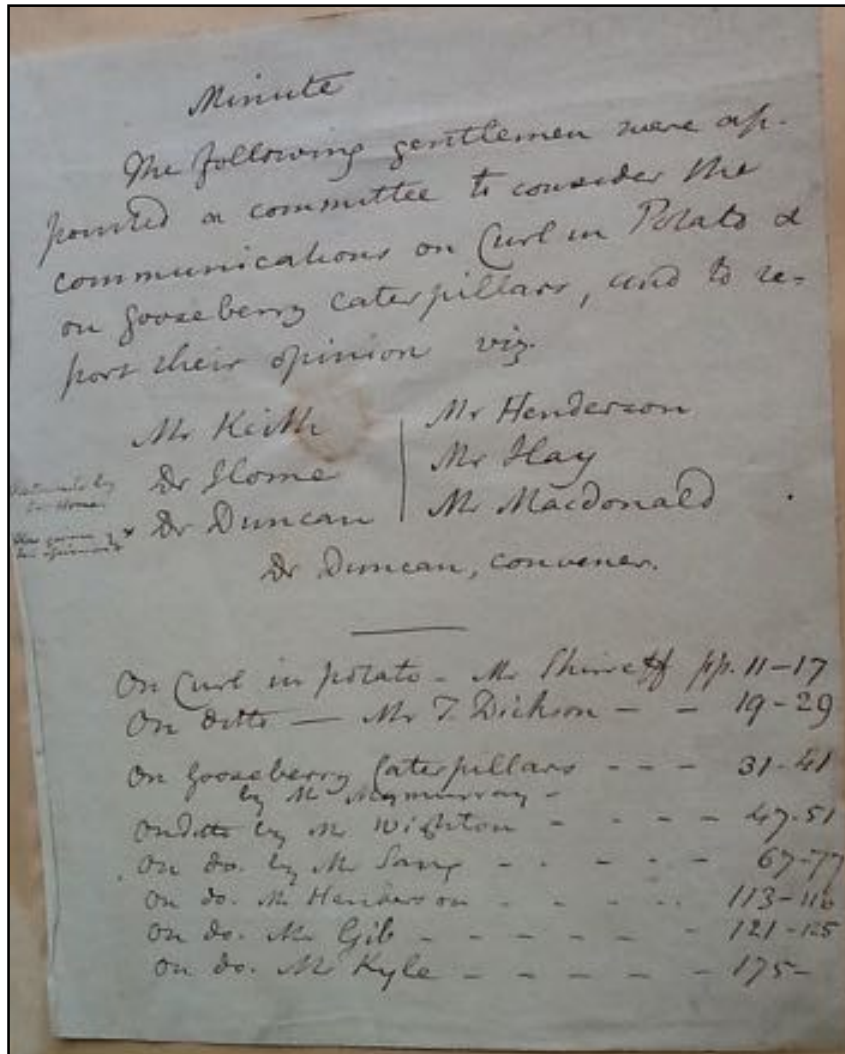 Minute
The following gentlemen were ap-
pointed a committee to consider the
communications on Curl in Potato &
on gooseberry caterpillars, and to re-
port their opinion viz.
Mr Keith
Dr Home
Dr Duncan
Mr Henderson
Mr Hay
Mr Macdonald
Dr Duncan, convener.
On Curl in potato - Mr Shirreff pp. 11-17
On ditto — Mr T. Dickson - - 19-29
On Gooseberry Caterpillars - - - 31-41
by Mr
On ditto by Mr Wighton - - - - 47-51
On do. by Mr Sang - - - - - 67-77
On do. Mr Henderson - - - - 113-116
On do. Mr Gib - - - - - - 121-125
On do. Mr Kyle - - - - - - 175-